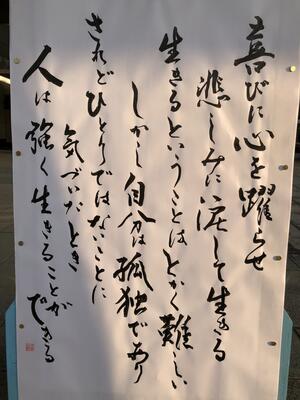 喜びに心を躍らせ
悲しみに涙して生きる
生きるということはとかく難しい
しかし自分は孤独であり
されどひとりではないことに
気づいたとき
人は強く生きることができる